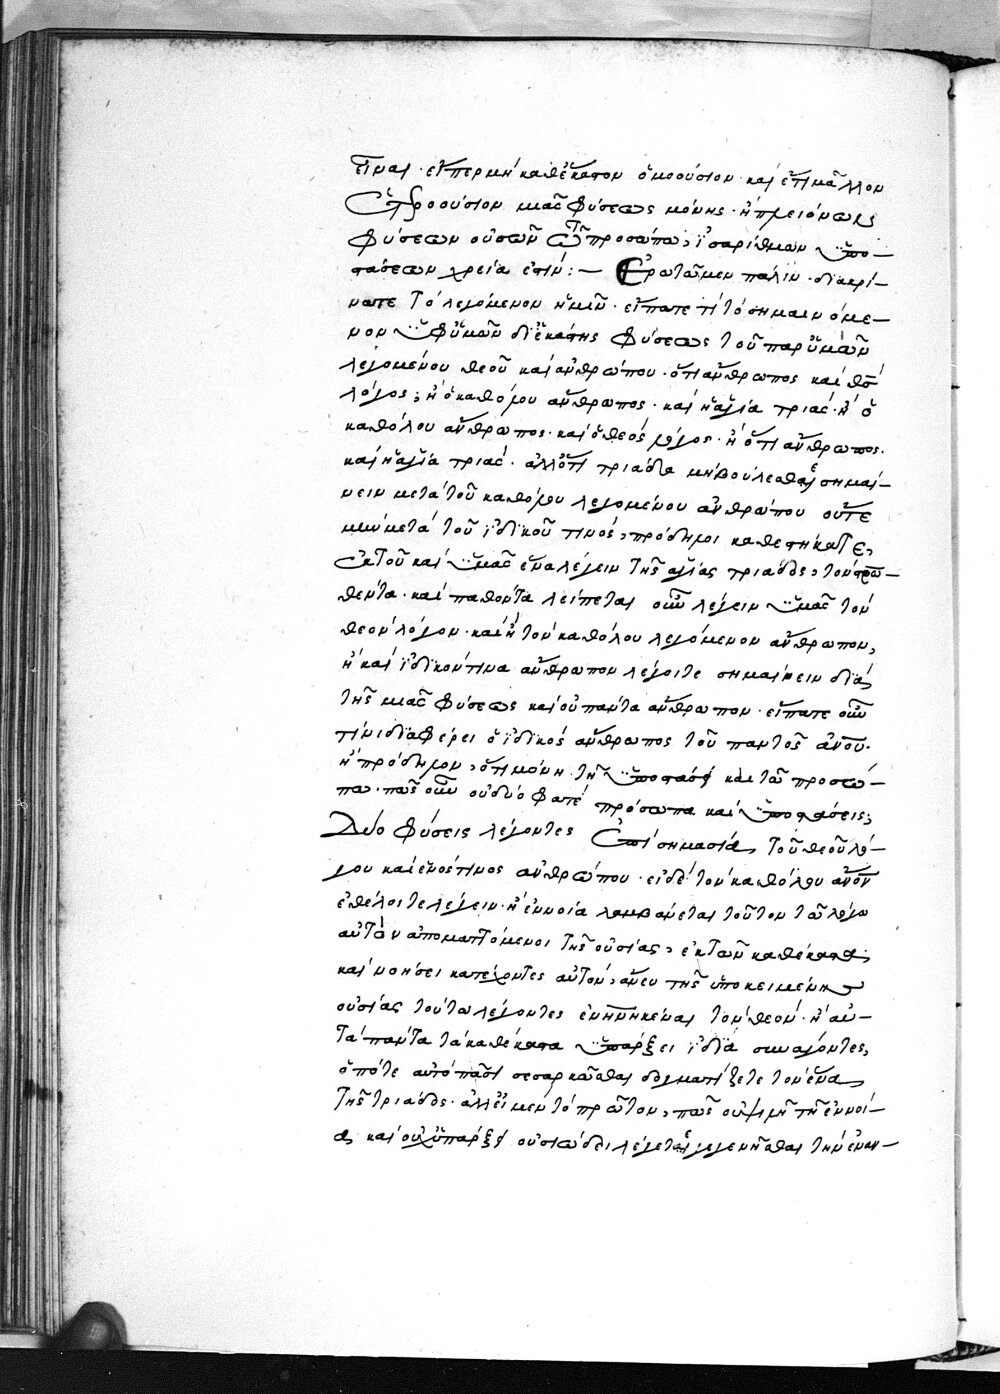 εἶναι · εἴπερ μὴ καθέκαστον ὁμοούσιον · καὶ ἔτι μᾶλλον
ἑτεροούσιον μιᾶς φύσεως μόνης · ἢ πλειόνων
φύσεων οὐσῶν προσώπων, ἰσαρίθμων ὑπο-
στάσεων χρεία ἐστίν : — Ἐρωτῶμεν πάλιν · διακρί-
νατε τὸ λεγόμενον ἡμῖν · εἴπατε τί τὸ σημαινόμε-
νον ὑφ' ὑμῶν δι' ἑκάστης φύσεως τοῦ παρ' ὑμῶν
λεγομένου θεοῦ καὶ ἀνθρώπου · ὅτι ἄνθρωπος καὶ θς
λόγος; ἢ ὁ καθόλου ἄνθρωπος · καὶ ἡ ἁγία τριάς · ἢ ὁ
καθόλου ἄνθρωπος · καὶ ὁ θεὸς λόγος · ἢ ὅτι ἄνθρωπος ·
καὶ ἡ ἁγία τριάς · ἀλλ' ὅτι τριάδα μὴ βούλεσθαι σημαί-
νειν μετὰ τοῦ καθόλου λεγομένου ἀνθρώπου οὔτε
μὴν μετὰ τοῦ ἰδικοῦ τινός, πρόδηλοι καθεστήκατε,
ἐκ τοῦ καὶ ὑμᾶς ἕνα λέγειν τῆς ἁγίας τριάδος, τὸν σρω-
θέντα · καὶ παθόντα λείπεται οὖν λέγειν ὑμᾶς τὸν
θεὸν λόγον · καὶ ἢ τὸν καθόλου λεγόμενον ἄνθρωπον,
ἢ καὶ ἰδικόν τινα ἄνθρωπον λέγοιτε σημαίνειν διὰ
τῆς μιᾶς φύσεως καὶ οὐ πάντα ἄνθρωπον · εἴπατε οὖν
τίνι διαφέρει ὁ ἰδικὸς ἄνθρωπος τοῦ παντὸς ἀνου ·
ἢ πρόδηλον, ὅτι μόνῃ τῇ ὑποστάσει καὶ τῷ προσώ-
πω · πῶς οὖν οὐ δύο φατὲ πρόσωπα καὶ ὑποστάσεις;
Δύο φύσεις λέγοντες ἐπὶ σημασίας τοῦ θεοῦ λό-
γου καὶ ἑνός τινος ἀνθρώπου · εἰ δὲ τὸν καθόλου ἀνον
ἐθέλοιτε λέγειν · ἢ ἐννοία λαμβάνεται τοῦτον τῷ λόγω
αὐτὸν ἀποματτόμενοι τῆς οὐσίας, ἐκ τῶν καθέκαστα
καὶ νοήσει κατέχοντες αὐτὸν, ἄνευ τῆς ὑποκειμένης
οὐσίας τούτω λέγοντες ἑνηνῆσθαι τὸν θεόν · ἢ αὐ-
τὰ πάντα τὰ καθέκαστα ὑπάρξει ἰδία συνάγοντες,
ὁπότε αὐτὸ πᾶσι σεσαρκῶσθαι δογματίζετε τὸν ἕνα
τῆς τριάδος · ἀλλ' εἰ μὲν τὸ πρῶτον, πῶς οὐ ψιλῇ τῇ ἐννοί-
ᾳ καὶ οὐχ ὑπάρξει οὐσιώδει λέγεται γεγενῆσθαι τὴν ἕνω-